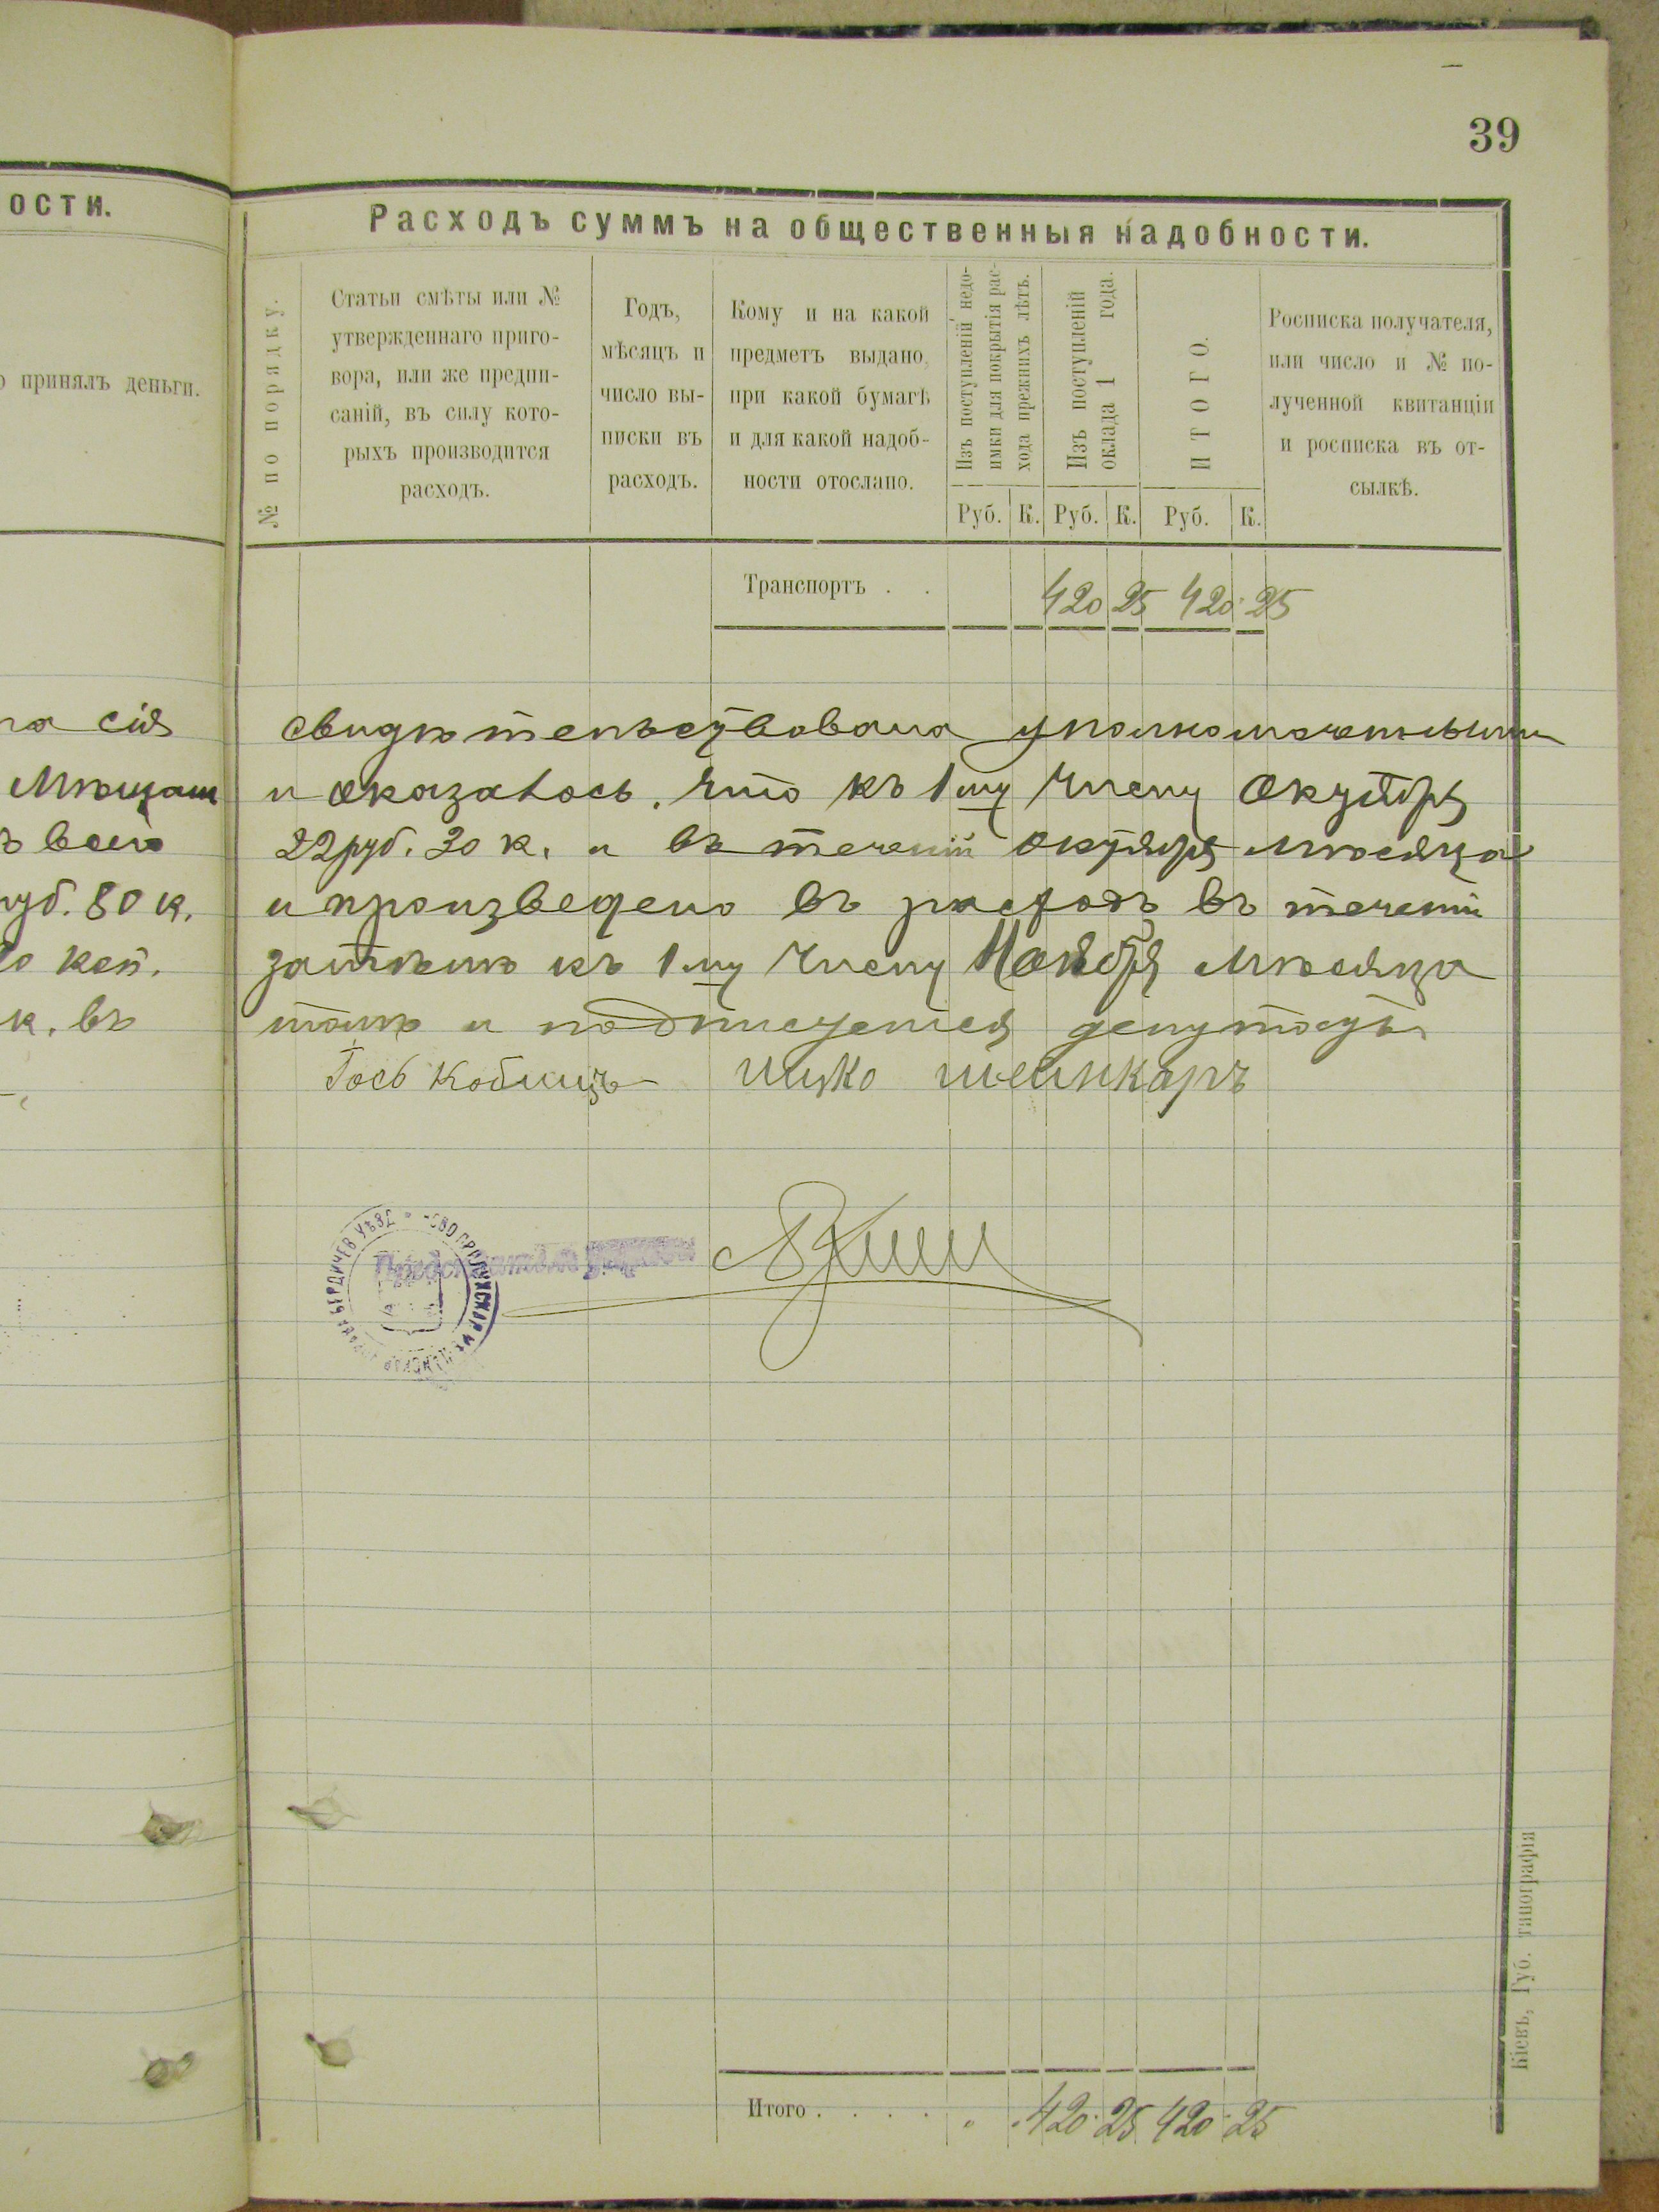 39
ости.
о принялъ деньги.
сія
всего
руб. 80 к.
коп.
к. въ
Расходъ суммъ на общественныя надобности.
№ по порядку.
Статьи смѣты или №
утвержденнаго приго-
вора, или же предпи-
саній, въ силу кото-
рыхъ производится
расходъ.
Годъ,
мѣсяцъ и
число вы-
писки въ
расходъ.
Кому и на какой
предметъ выдано,
при какой бумагѣ
и для какой надоб-
ности отослано.
Изъ поступленій недо-
имки для покрытія рас-
хода прежнихъ лѣтъ.
Изъ поступленій
оклада 1 года.
ИТОГО.
Росписка получателя,
или число и № по-
лученной квитанціи
и росписка въ от-
сылкѣ.
Руб. К. Руб. К. Руб. К.
Транспортъ . . 420 25 420 25
свидѣтельствована уполномоченными
и оказалось, что къ 1му числу Октября
22 руб. 30 к. и въ теченіи октября мѣсяца
и произведено въ расходъ въ теченіи
затѣмъ къ 1му числу Ноября мѣсяца
томъ и подписуемся депутаты
Ицко Шейнкаръ
БЕРДИЧЕВ УѢЗД
Итого . . . . 420 25 420 25
Кіевъ, Губ. типографія